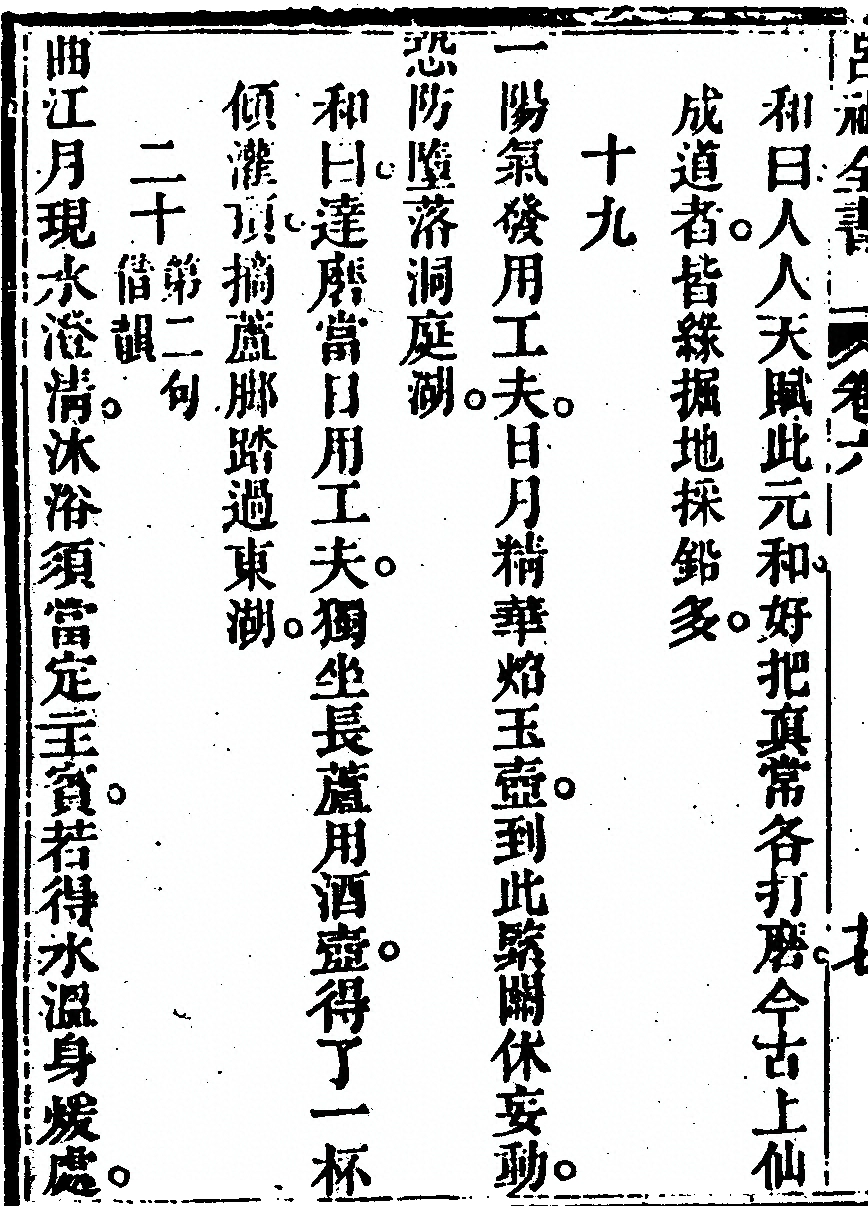 呂祖全書 卷六
和曰人人天賦此元和好把眞常各打磨今古上仙
成道者皆緣掘地採鉛多
十九
一陽氣發用工夫日月精華焰玉壺到此緊關休妄動
恐防墮落洞庭湖
和曰達磨當日用工夫獨坐長蘆用酒壺得了一杯
傾灌頂摘蘆腳踏過東湖
二十 第二句借韻
曲江月現水澄清沐浴須當定主賓若得水溫身煖處